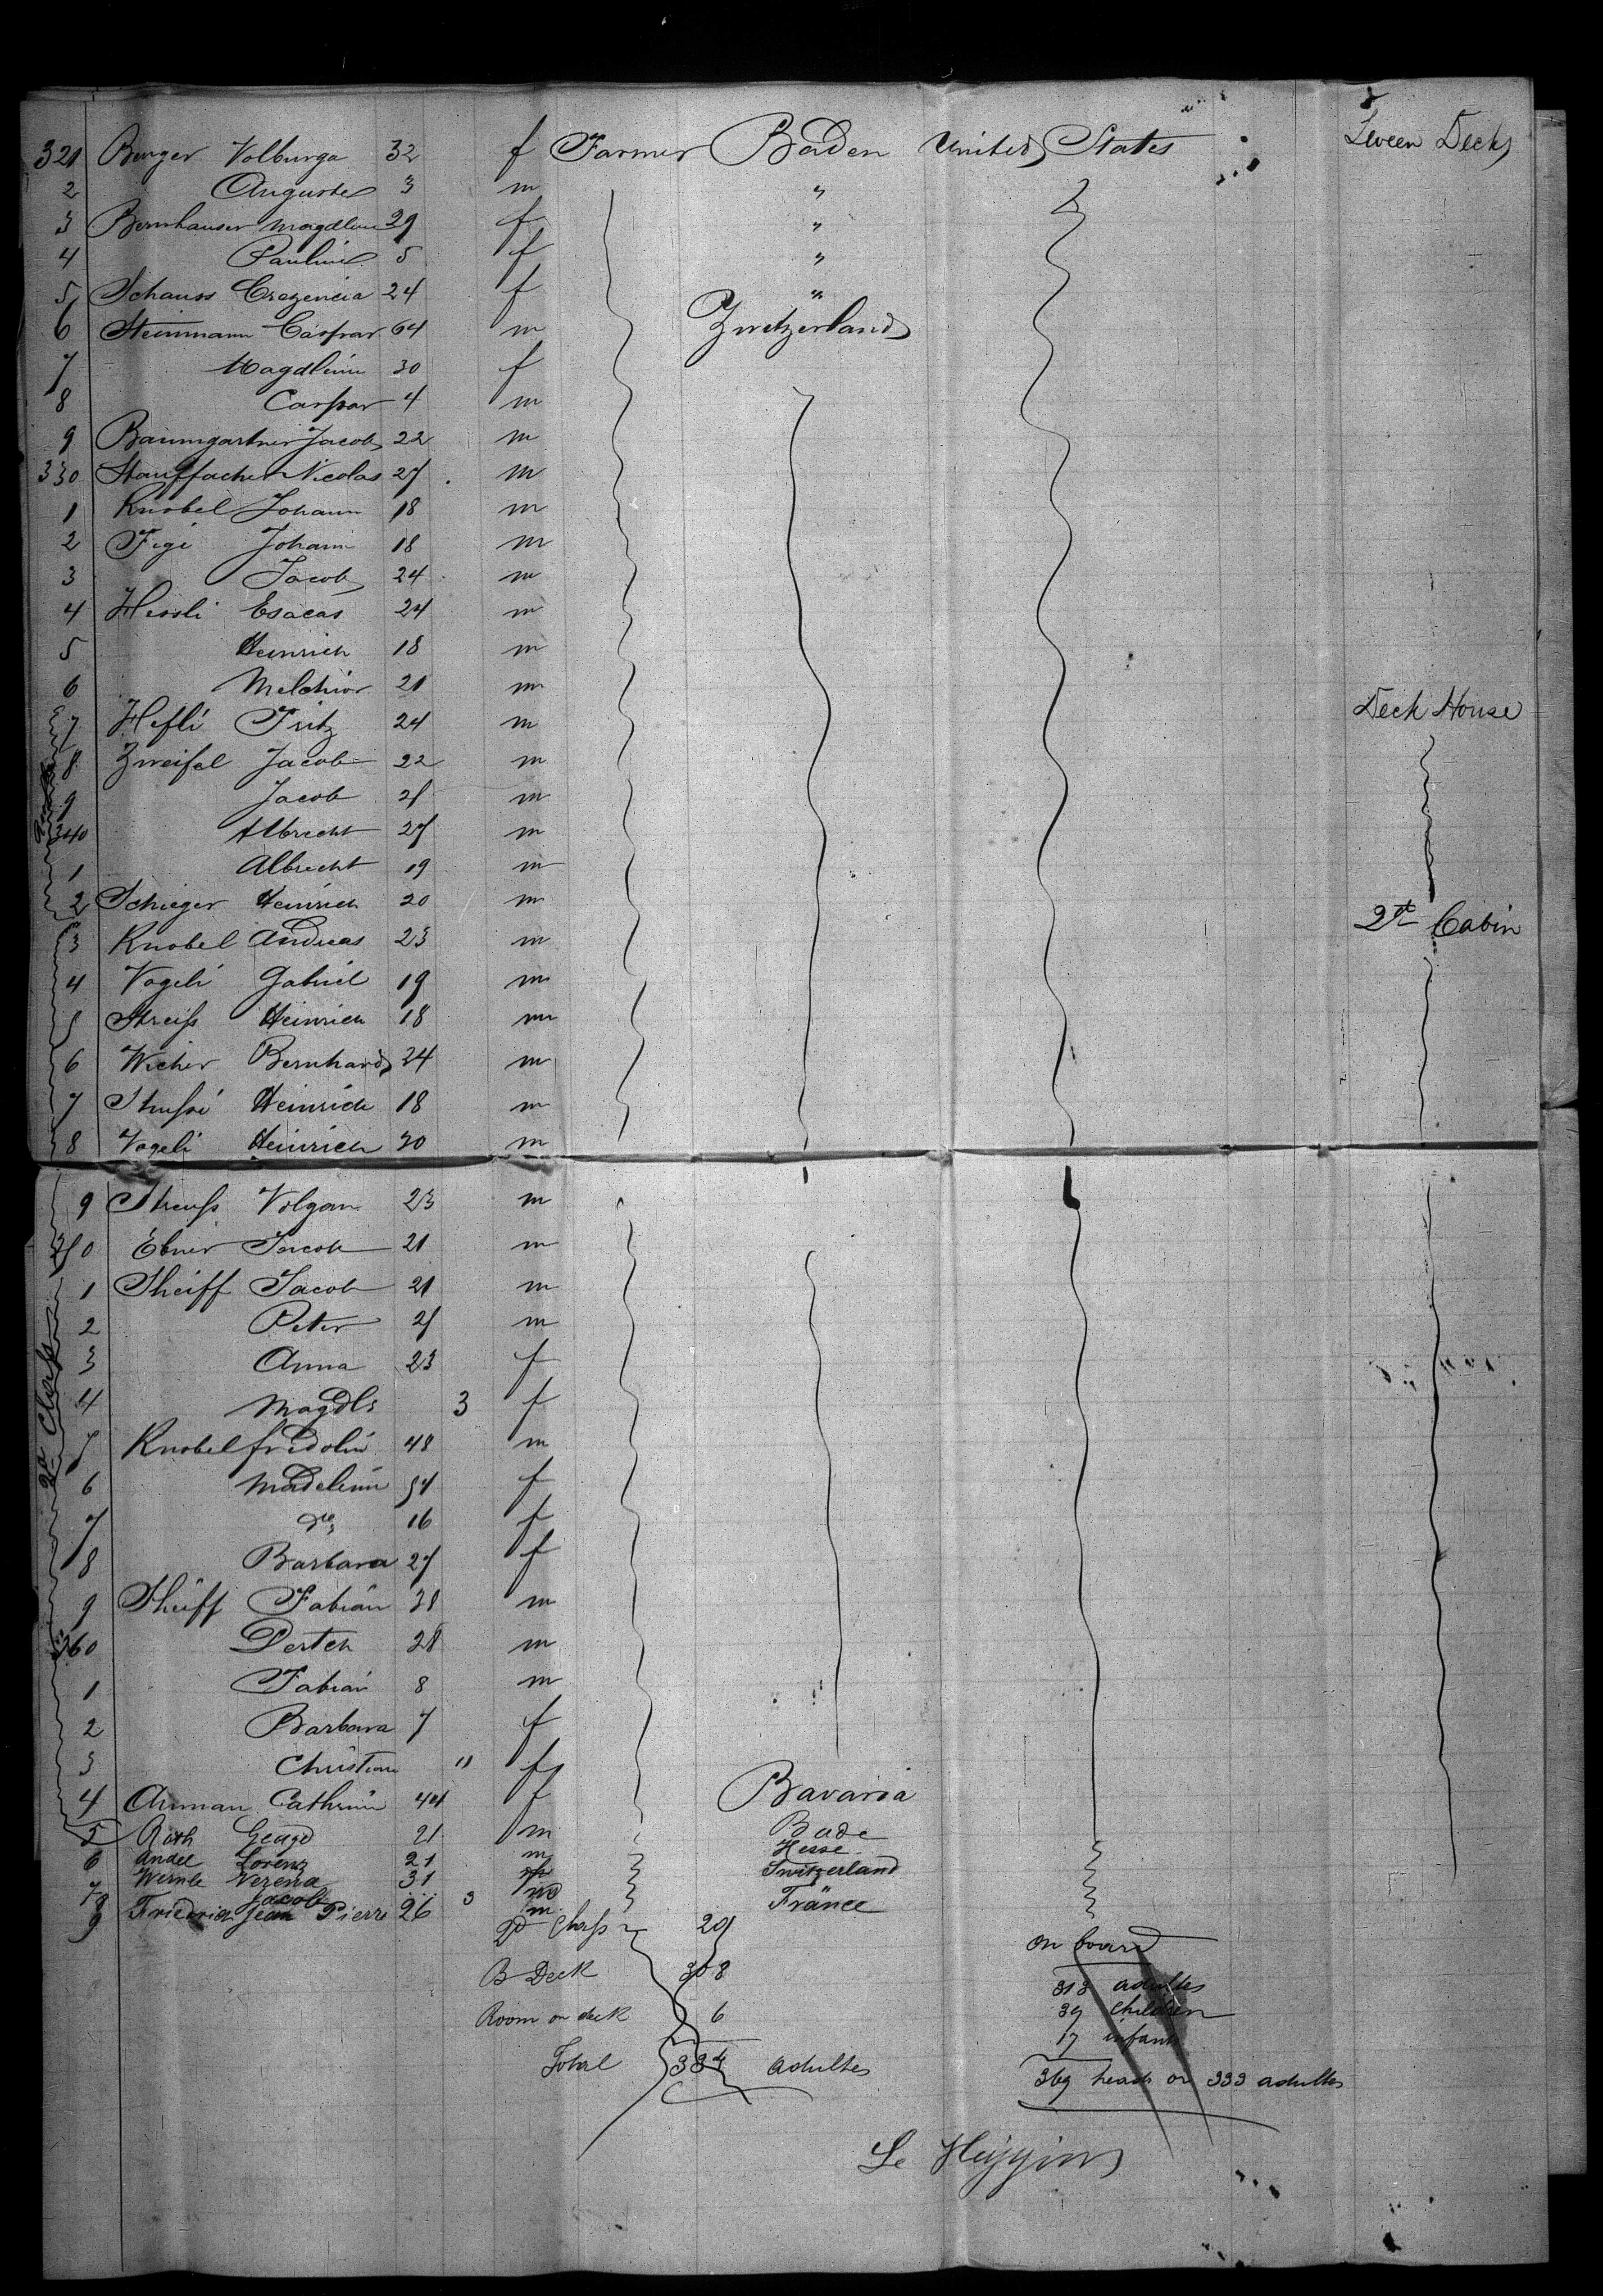 321 Burger Volburga 32 f Farmer Baden United States Tween Decks
2 Auguste 3 m "
3 Bernhauser Magdlena 29 f "
4 Pauline 5 f "
5 Schauss Crezencia 24 f "
6 Steinmann Caspar 64 m Zwetzerland
7 Magdlena 30 f
8 Caspar 4 m
9 Baumgartner Jacob 22 m
330 Stauffacher Nicolas 27 m
1 Knobel Johann 18 m
2 Figi Johann 18 m
3 Jacob 24 m
4 Hessli Esacas 24 m
5 Heinrich 18 m
6 Melchior 21 m
7 Hefli Fritz 24 m Deck House
8 Zweifel Jacob 22 m
9 Jacob 21 m
340 Albrecht 27 m
1 Albrecht 19 m
2 Schieger Heinrich 20 m
3 Knobel Andreas 23 m 2d Cabin
4 Vogeli Gabriel 19 m
5 Streiss Heinrich 18 m
6 Wicher Bernhard 24 m
7 Stussi Heinrich 18 m
8 Vogeli Heinrich 30 m
9 Streuss Volgan 23 m
350 Ebner Jacob 21 m
1 Sheiff Jacob 21 m
2 Peter 25 m
3 Anna 23 f
4 Magdl 3 f
5 Knobel fridolin 48 m
6 Madelena 54 f
7 do 16 f
8 Barbara 27 f
9 Sheiff Fabian 38 m
360 28 m
1 Fabian 8 m
2 Barbara 7 f
3 Christian " f
4 Amman Cathrin 44 f Bavaria
5 Roth Geugd 21 m Bade
6 Andel Lorenz 21 m Hesse
7 Wernle Verena 31 f Switzerland
8 Jacob 3 m
9 Friedrich Jean Pierre 26 m France
2d Class
2d Class 20
B Deck 308
Room on deck 6
Total 334 adultes
on board
313 adultes
39 children
17 infants
369 heads or 333 adultes
Le Higgins